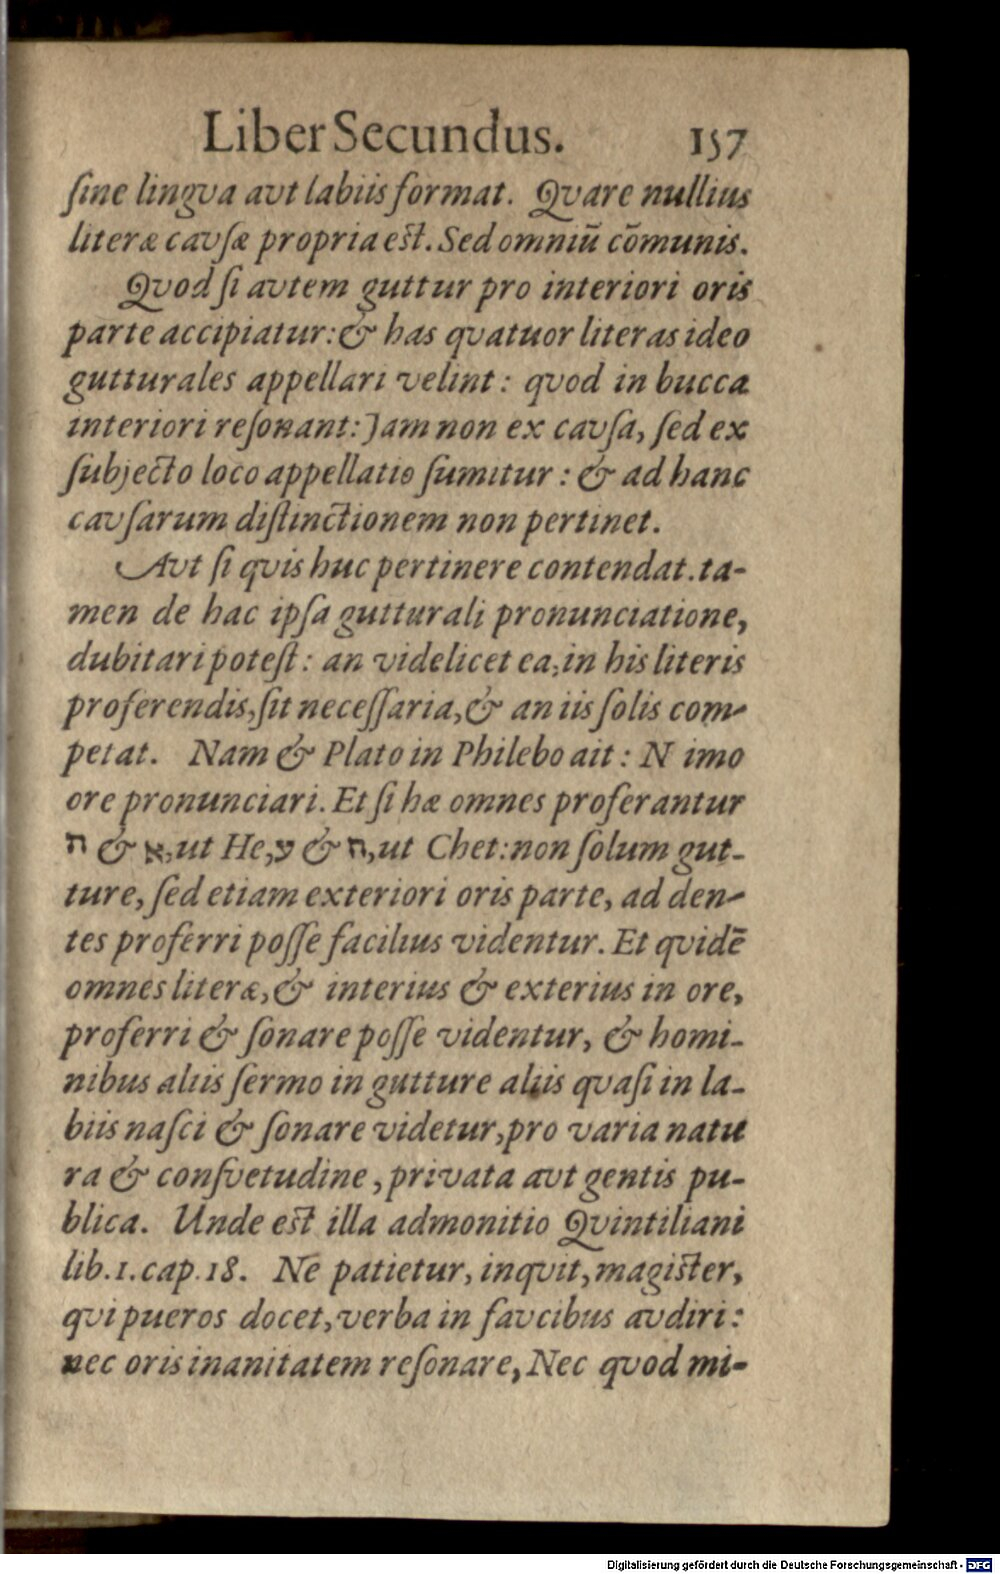 Liber Secundus. 157
ſine lingva avt labiis format. Qvare nullius
literæ cavſæ propria est. Sed omniū cōmunis.
Qvod ſi avtem guttur pro interiori oris
parte accipiatur: & has qvatuor literas ideo
gutturales appellari velint: qvod in bucca
interiori reſonant: Jam non ex cavſa, ſed ex
ſubjecto loco appellatio ſumitur: & ad hanc
cavſarum diſtinctionem non pertinet.
Avt ſi qvis huc pertinere contendat. ta-
men de hac ipſa gutturali pronunciatione,
dubitari poteſt: an videlicet ea, in his literis
proferendis, ſit neceſſaria, & an iis ſolis com-
petat. Nam & Plato in Philebo ait: N imo
ore pronunciari. Et ſi hæ omnes proferantur
ה & א, ut He, ע & ח, ut Chet: non ſolum gut-
ture, ſed etiam exteriori oris parte, ad den-
tes proferri poſſe facilius videntur. Et qvidē
omnes literæ, & interius & exterius in ore,
proferri & ſonare poſſe videntur, & homi-
nibus aliis ſermo in gutture aliis qvaſi in la-
biis naſci & ſonare videtur, pro varia natu
ra & conſvetudine, privata avt gentis pu-
blica. Unde est illa admonitio Qvintiliani
lib. 1. cap. 18. Ne patietur, inqvit, magister,
qvi pueros docet, verba in favcibus avdiri:
nec oris inanitatem reſonare, Nec qvod mi-
Digitalisierung gefördert durch die Deutsche Forschungsgemeinschaft - DFG